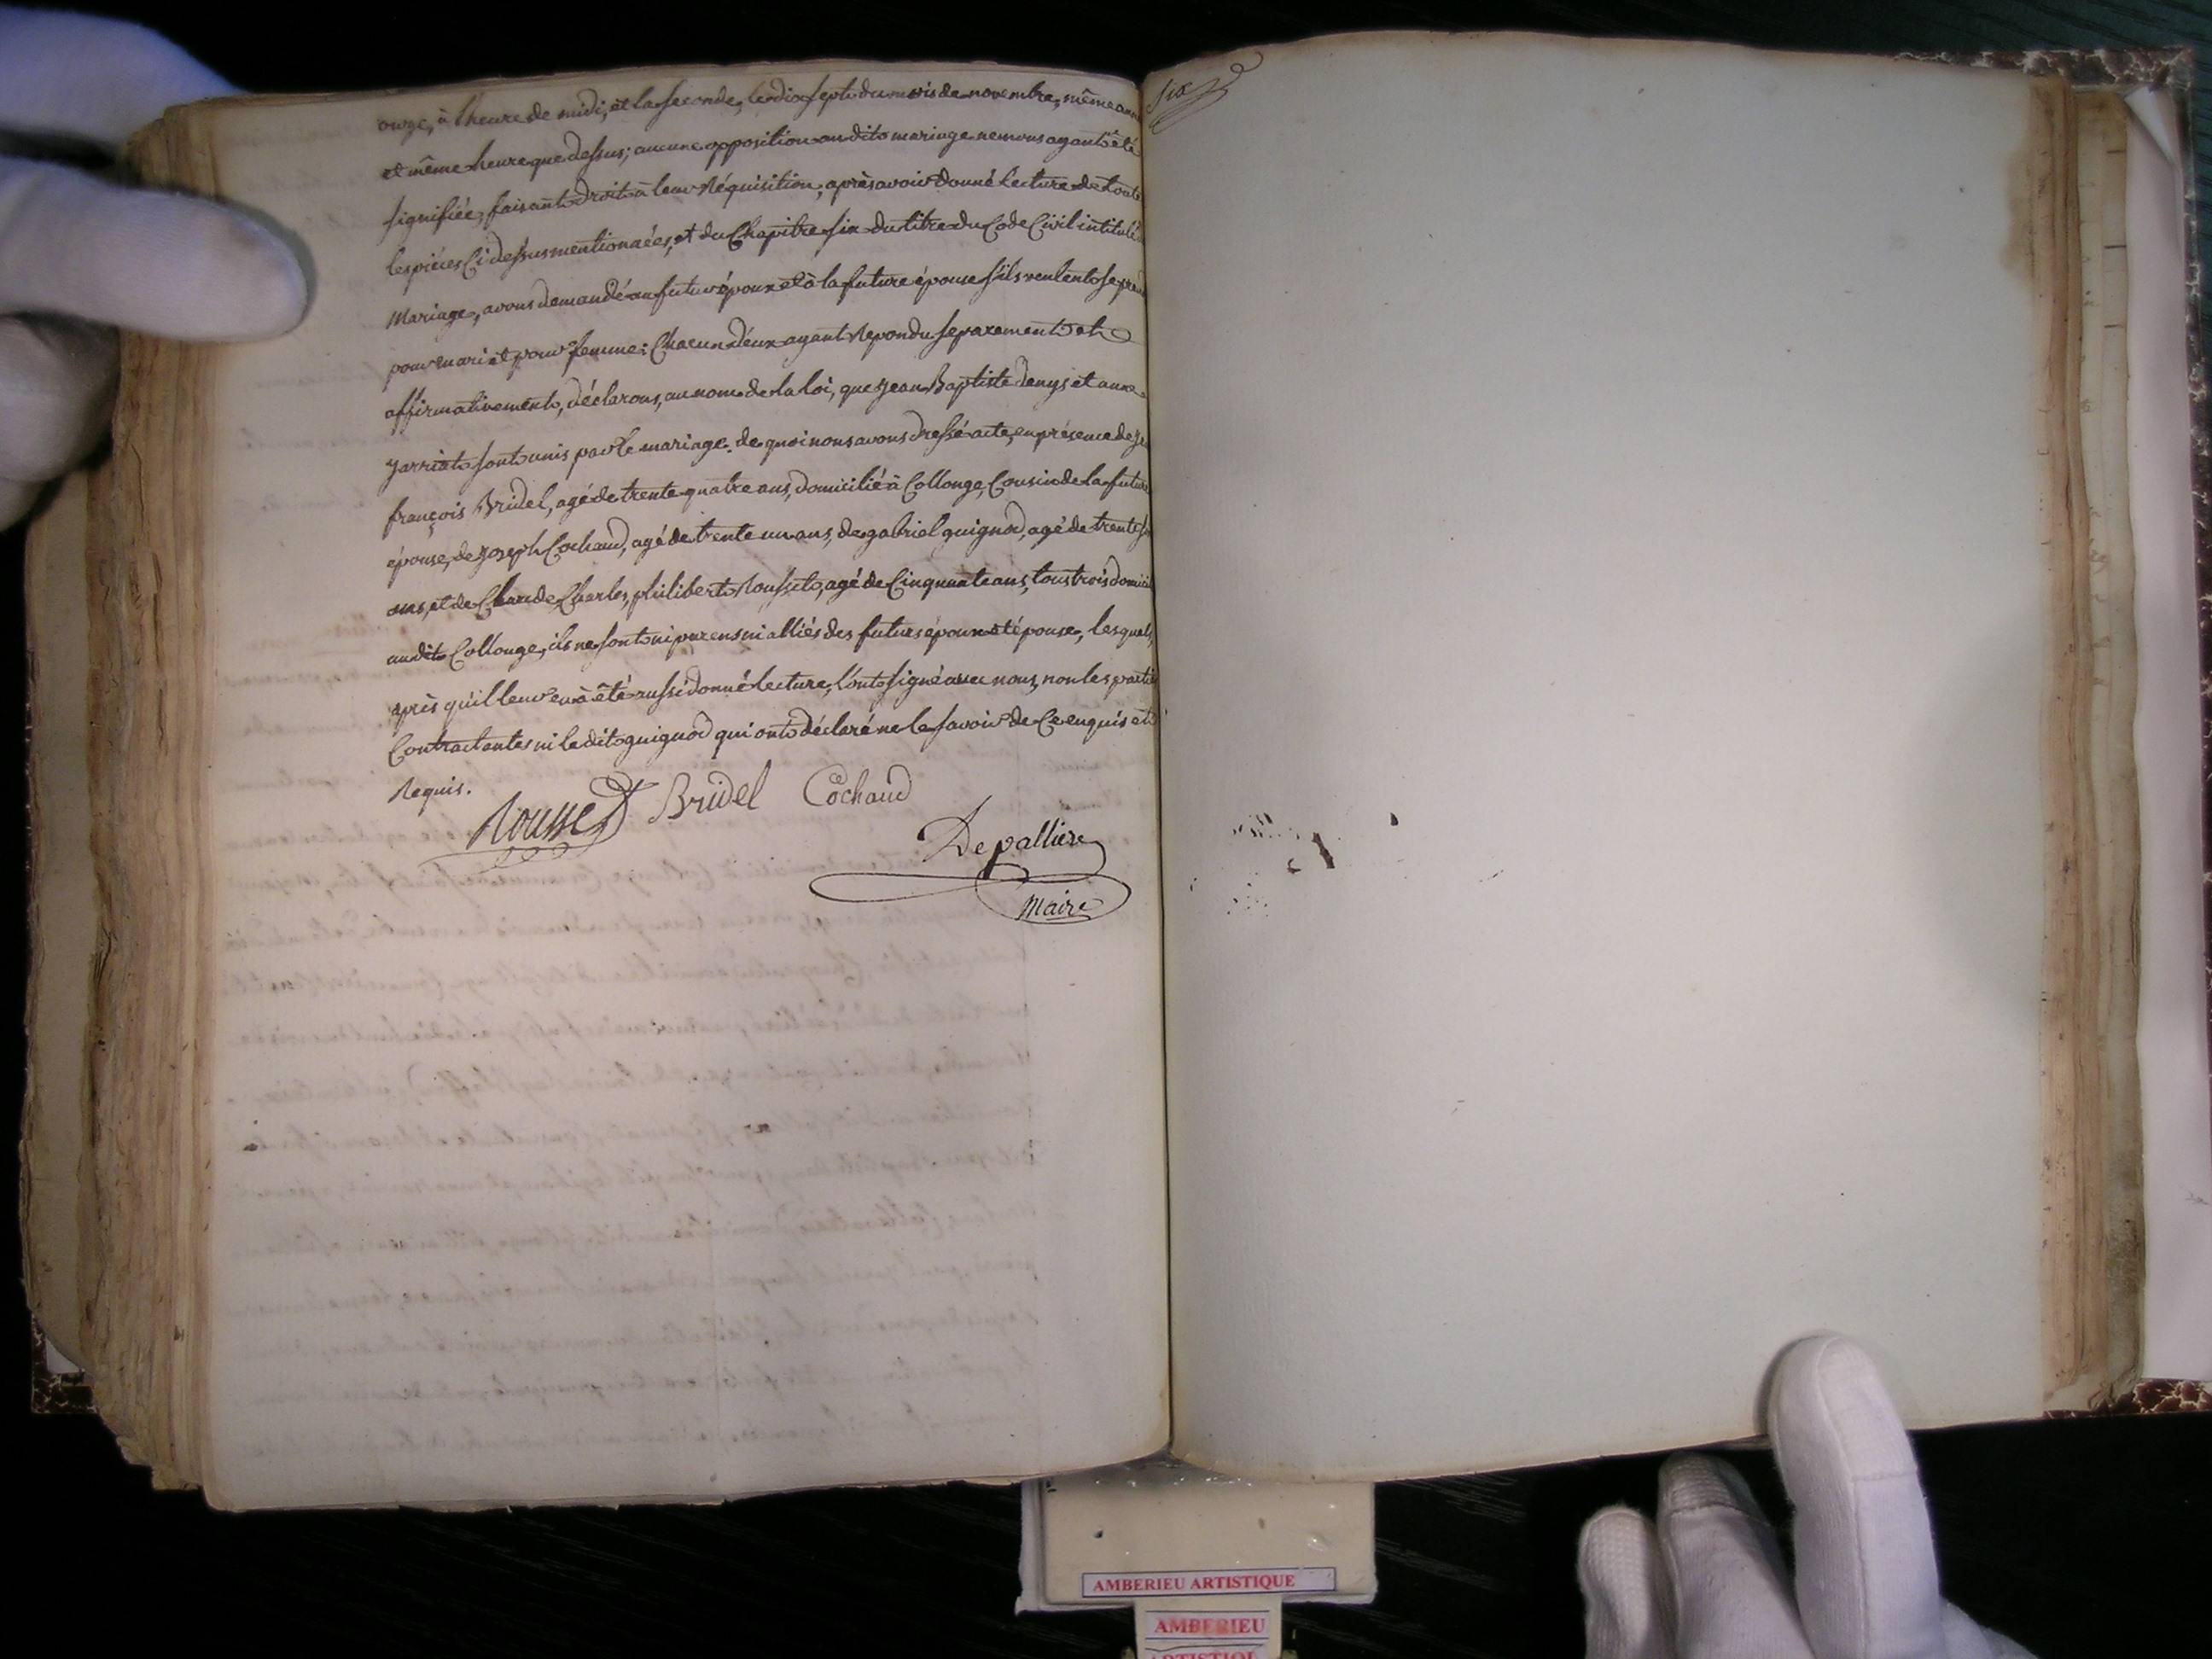 onze, à l'heure de midi, et la seconde, le dix sept du mois de novembre, même
et même heure que dessus; aucune opposition au dit mariage ne nous ayant été
signifiée, faisant droit à leur Réquisition, après avoir donné lecture de toute
les pièces Ci dessus mentionnées, et du Chapitre six du titre du Code Civil intitulé
Mariage, avons demandé au futur époux et à la future épouse s'ils veulent se
pour mari et pour femme: Chacun d'eux ayant Repondu separement et
affirmativement, déclarons, au nom de la loi, que jean Baptiste denys et anne
jarriat sont unis par le mariage. de quoi nous avons dressé acte, en présence de
françois Bridel, agé de trente quatre ans, domicilié à Collonge, Cousin de la future
épouse, de joseph Cochaud, agé de trente un ans, de gabriel guignod, agé de trente
ans, et de Claude Charles, philibert Rousset, agé de Cinquante ans, tous trois
au dit Collonge, ils ne sont ni parens ni alliés des futurs époux et épouse, lesquels,
après qu'il leur en à été aussi donné lecture, l'ont signé avec nous, non les
Contractantes ni le dit guignod qui ont déclaré ne le savoir de Ce enquis et
Requis.
Rousset Bridel Cochaud
Depalliere
Maire
six
AMBERIEU ARTISTIQUE
AMBERIEU
ARTISTIQUE